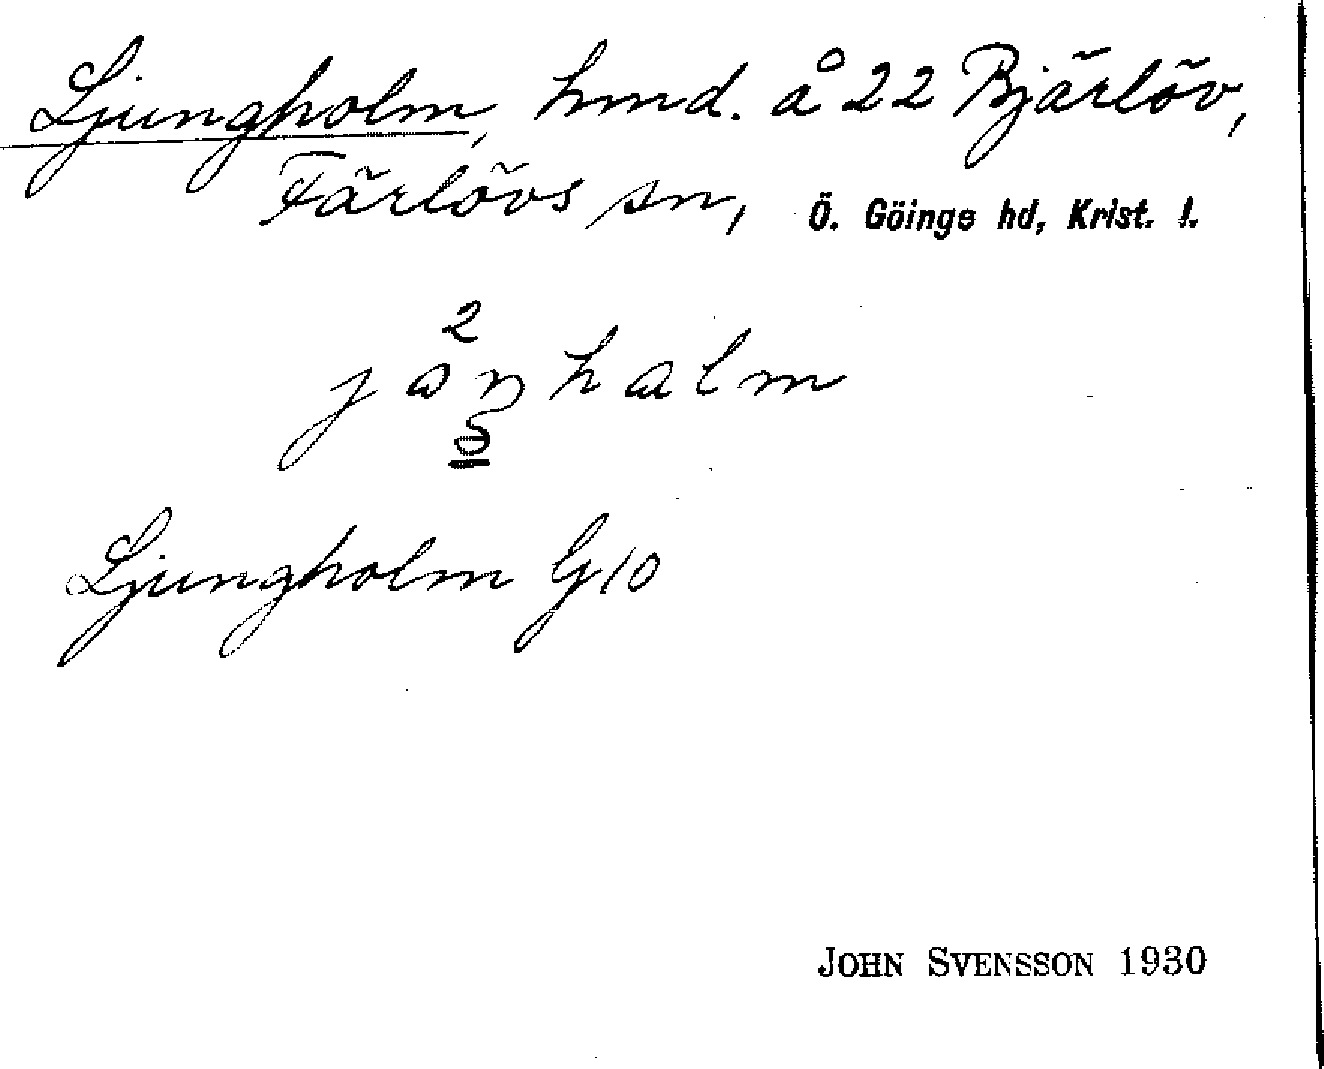 Ljungholm, hmd. å 22 Bjärlöv,
Färlövs sn, Ö. Göinge hd, Krist. l.
2
jåŋhalm
Ljungholm G10
JOHN SVENSSON 1930